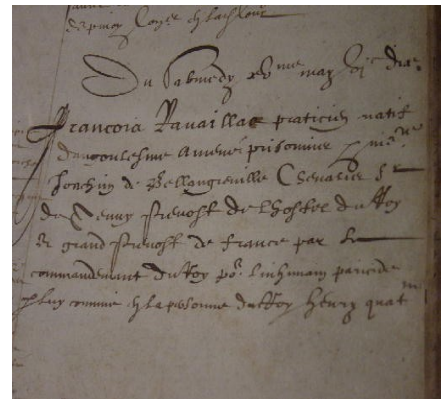 Du Sabmedy xv me may vj c dix
Francois Ravaillac praticien natif
dangoulesme amené prisonnier p m re
Joachim de Bellangreville Chevalier s r
de Neuvy prevost de lhostel du Roy
& grand prevost de france par le
commandement du Roy po r linhumain paricide
p luy commis en la personne du Roy henry quat m